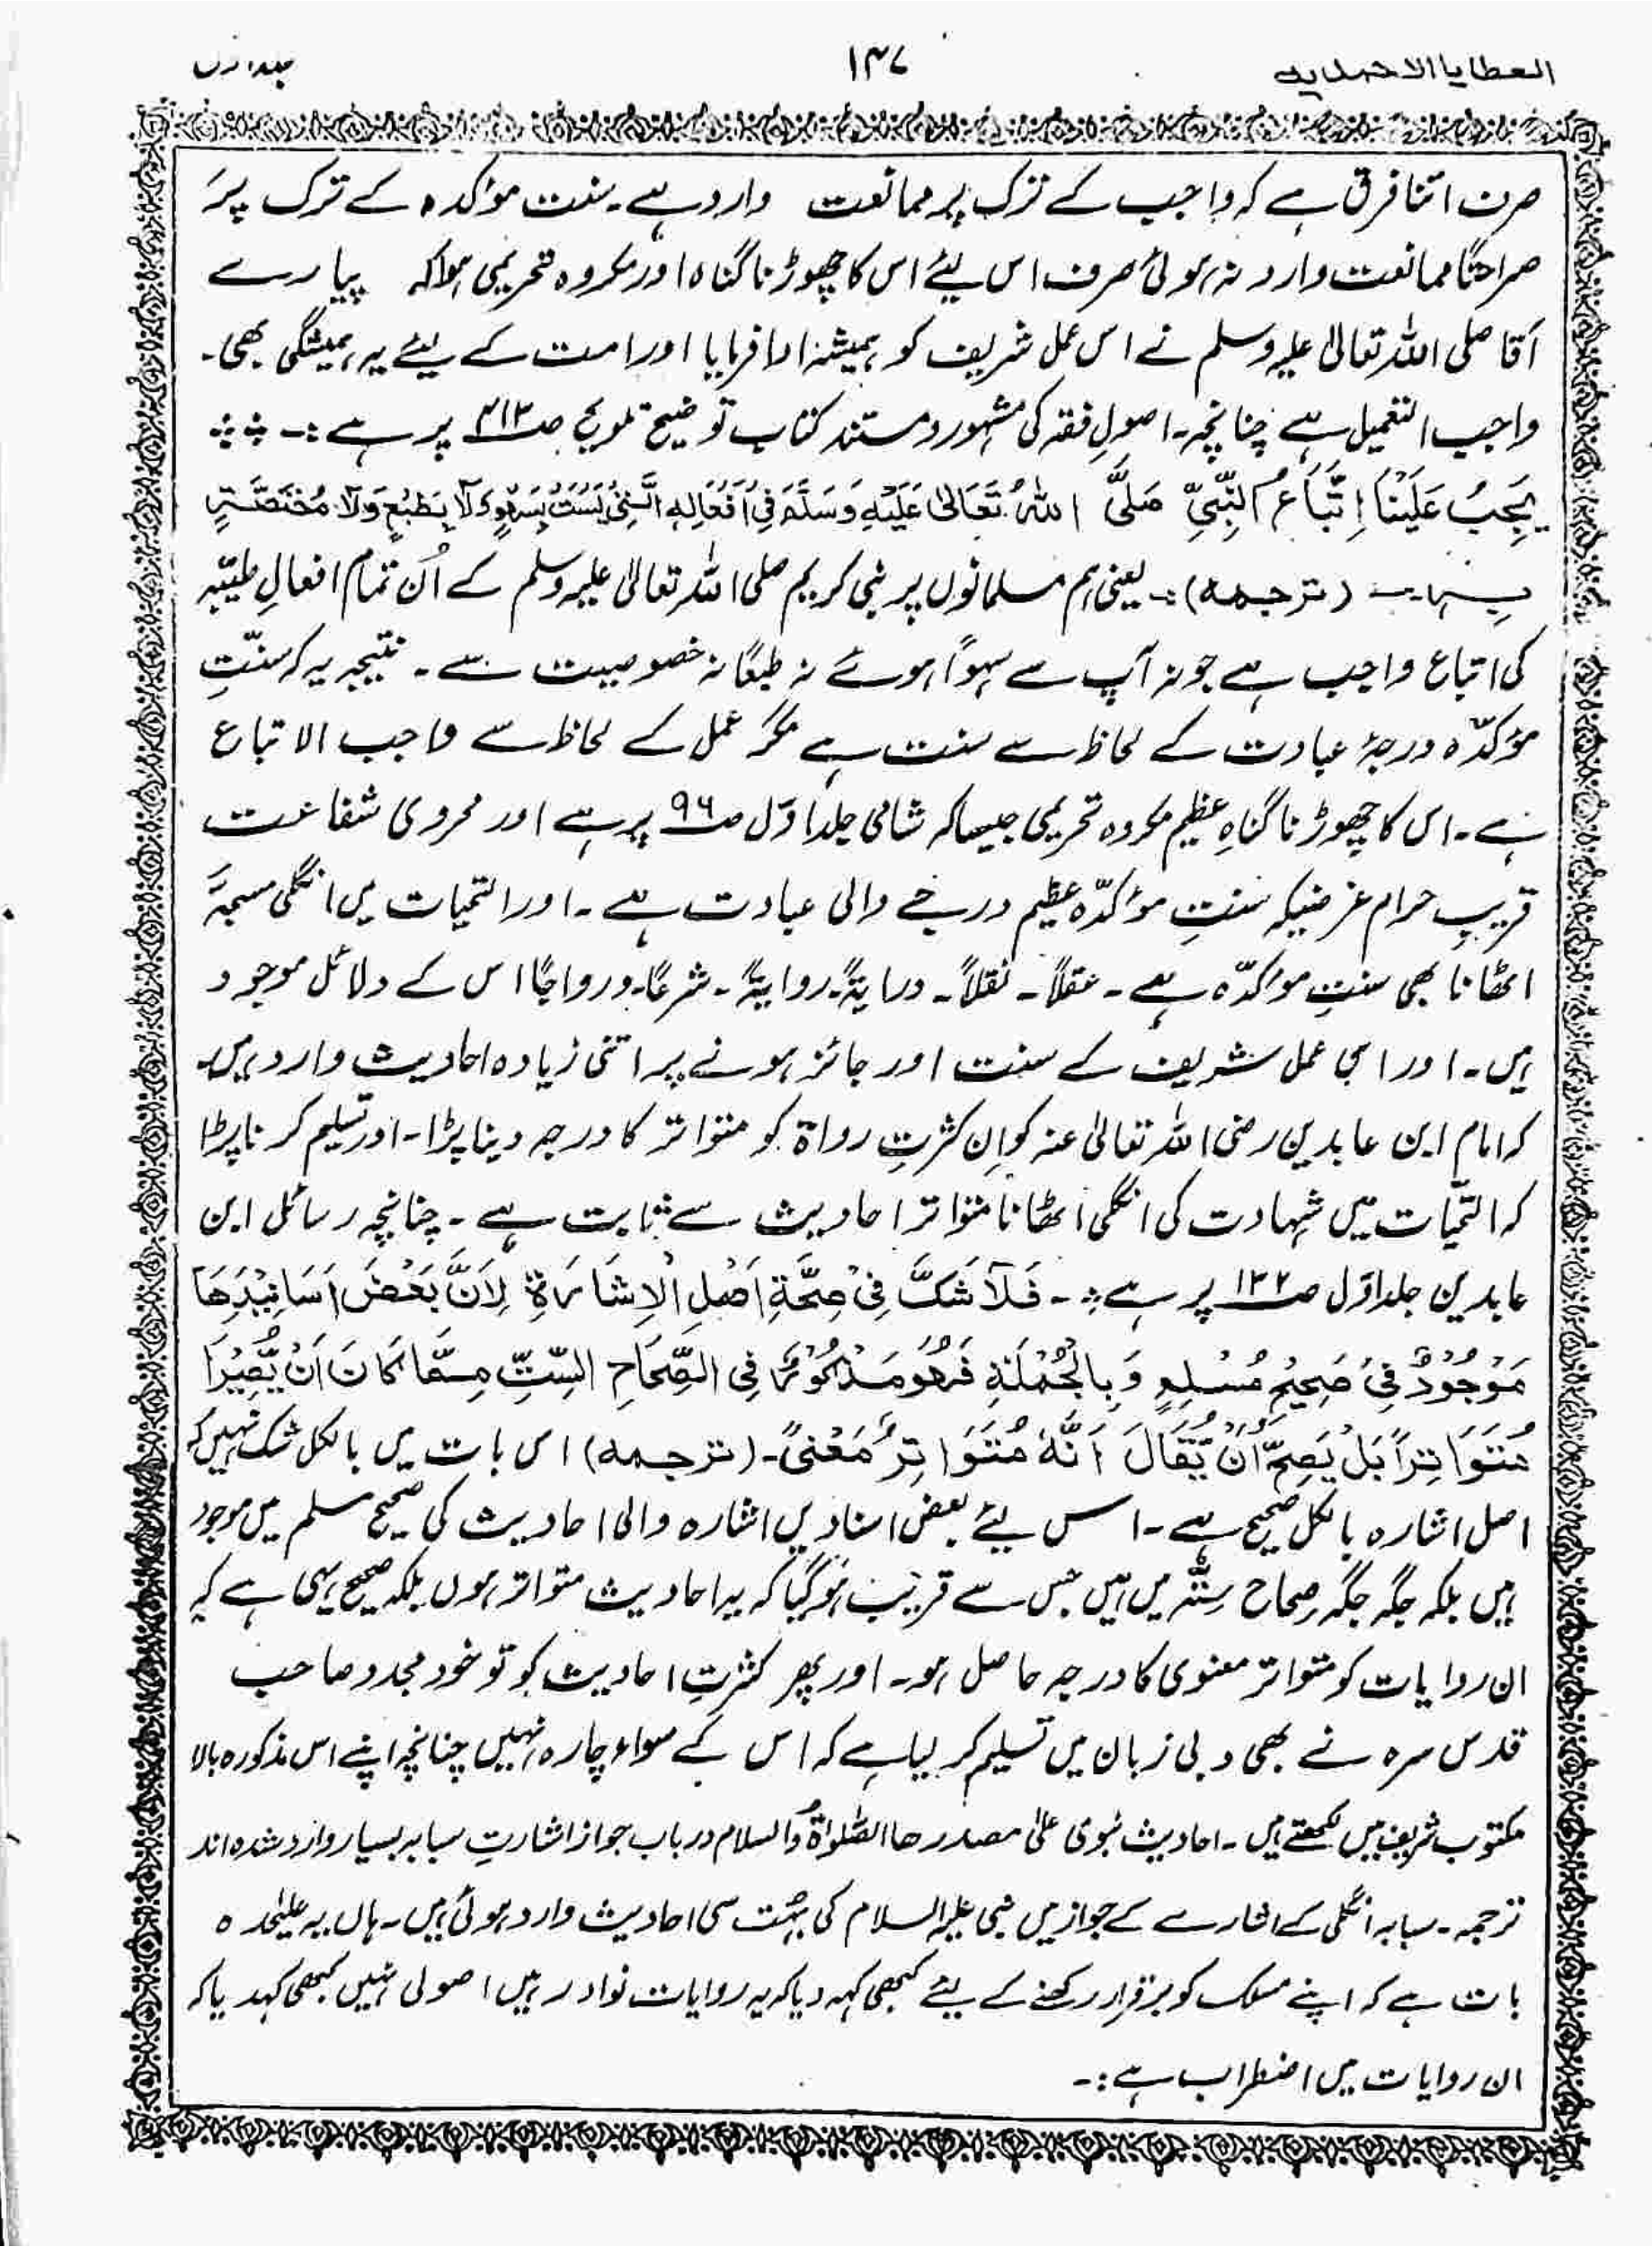 العطایا الاحمدیہ ۱۳۷ جلد اول
صرف اتنا فرق ہے کہ واجب کے ترک پر ممانعت وارد ہے۔ سنت مؤکدہ کے ترک پر
صراحتًا ممانعت وارد نہ ہوئی صرف اس لیئے اس کا چھوڑنا گناہ اور مکروہ تحریمی ہوا کہ پیارے
آقا صلی اللہ تعالیٰ علیہ وسلم نے اس عمل شریف کو ہمیشہ ادا فرمایا اور امت کے لیئے یہ ہمیشگی بھی۔
واجب التعمیل ہے چنانچہ۔ اصولِ فقہ کی مشہور و مستند کتاب توضیح تلویح صـ۴۱۳ پر ہے :۔
یَجِبُ عَلَیْنَا اِتِّبَاعُ النَّبِیِّ صَلَّی اللّٰہُ تَعَالیٰ عَلَیْہِ وَسَلَّمَ فِیْ اَفْعَالِہِ الَّتِیْ لَیْسَتْ بِسَہْوٍ وَلَا بِطَبْعٍ وَلَا مُخْتَصَّۃٍ
بِہٖ۔ (ترجمہ) :۔ یعنی ہم مسلمانوں پر نبی کریم صلی اللہ تعالیٰ علیہ وسلم کے اُن تمام افعالِ طیّبہ
کی اتباع واجب ہے جو نہ آپ سے سہوًا ہوئے نہ طبعًا نہ خصوصیت سے۔ نتیجہ یہ کہ سنّتِ
مؤکدّہ درجۂ عبادت کے لحاظ سے سنت ہے مگر عمل کے لحاظ سے واجب الاتباع
ہے۔ اس کا چھوڑنا گناہِ عظیم مکروہ تحریمی جیسا کہ شامی جلد اوّل صـ۹۶ پر ہے اور محرومی شفاعت
قریبِ حرام غرضیکہ سنتِ مؤکدّہ عظیم درجے والی عبادت ہے۔ اور التحیات میں انگلی مسبحہ
اٹھانا بھی سنتِ مؤکدّہ ہے۔ عقلاً۔ نقلاً۔ درایۃً۔ روایۃً۔ شرعًا۔ ورواجًا اس کے دلائل موجود
ہیں۔ اور اس عمل شریف کے سنت اور جائز ہونے پر اتنی زیادہ احادیث وارد ہیں۔
کہ امام ابن عابدین رضی اللہ تعالیٰ عنہ کو اِن کثرتِ رواۃ کو متواتر کا درجہ دینا پڑا۔ اور تسلیم کرنا پڑا
کہ التحّیات میں شہادت کی انگلی اٹھانا متواتر احادیث سے ثابت ہے۔ چنانچہ رسائل ابن
عابدین جلد اوّل صـ۱۳۲ پر ہے :۔ فَلَا شَکَّ فِیْ صِحَّۃِ اَصْلِ الْاِشَارَۃِ لِاَنَّ بَعْضَ اَسَانِیْدِھَا
مَوْجُوْدٌ فِیْ صَحِیْحِ مُسْلِمٍ وَ بِالْجُمْلَۃِ فَھُوَ مَذْکُوْرٌ فِی الصِّحَاحِ السِّتِّ مِمَّا کَانَ اَنْ یُّصِیْرَ
مُتَوَاتِراً بَلْ یَصِحُّ اَنْ یُّقَالَ اَنَّہٗ مُتَوَاتِرٌ مَعْنیً۔ (ترجمہ) اس بات میں بالکل شک نہیں کہ
اصل اشارہ بالکل صحیح ہے۔ اس لیئے بعض اسنادیں اشارہ والی احادیث کی صحیح مسلم میں موجود
ہیں بلکہ جگہ جگہ صحاح ستہّ میں ہیں جس سے قریب ہو گیا کہ یہ احادیث متواتر ہوں بلکہ صحیح یہی ہے کہ
ان روایات کو متواتر معنوی کا درجہ حاصل ہو۔ اور پھر کثرتِ احادیث کو تو خود مجدد صاحب
قدس سرہ نے بھی دبی زبان میں تسلیم کر لیا ہے کہ اس کے سواء چارہ نہیں چنانچہ اپنے اس مذکورہ بالا
مکتوب شریف میں لکھتے ہیں۔ احادیث نبوی علیٰ مصدرھا الصَّلوٰۃُ والسلام در باب جواز اشارتِ سبابہ بسیار وارد شدہ اند
ترجمہ۔ سبابہ انگلی کے اشارے کے جواز میں نبی علیہ السلام کی بہُت سی احادیث وارد ہوئی ہیں۔ ہاں یہ علیٰحدہ
بات ہے کہ اپنے مسلک کو برقرار رکھنے کے لیئے کبھی کہہ دیا کہ یہ روایات نوادر ہیں اصولی نہیں کبھی کہدیا کہ
ان روایات میں اضطراب ہے :۔